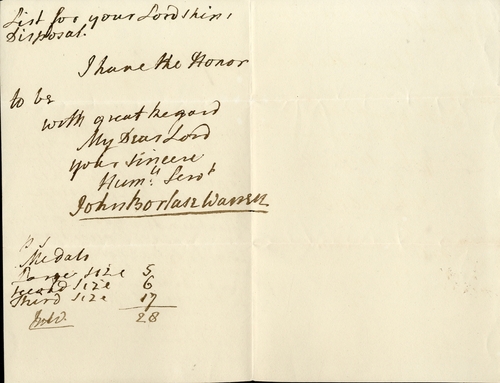 List for your Lordships
Disposal.
I have the Honor
to be
with great Regard
My Dear Lord
your sincere
Humle Servt
John Borlase Warren
PS
Medals
Large size 5
second size 6
Third size 17
Total 28